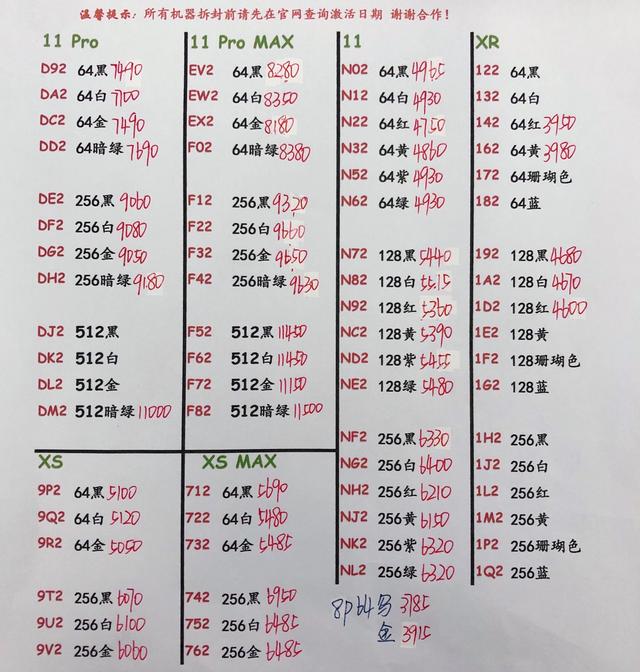 温馨提示：所有机器拆封前请先在官网查询激活日期 谢谢合作！
11 Pro
D92 64黑 7490
DA2 64白 7100
DC2 64金 7490
DD2 64暗绿 7690
DE2 256黑 9060
DF2 256白 9080
DG2 256金 9050
DH2 256暗绿 9180
DJ2 512黑
DK2 512白
DL2 512金
DM2 512暗绿 11000
11 Pro MAX
EV2 64黑 8280
EW2 64白 8350
EX2 64金 8180
F02 64暗绿 8380
F12 256黑 9320
F22 256白 9660
F32 256金 9650
F42 256暗绿 9630
F52 512黑 11450
F62 512白 11450
F72 512金 11150
F82 512暗绿 11500
11
N02 64黑 4965
N12 64白 4930
N22 64红 4750
N32 64黄 4860
N52 64紫 4930
N62 64绿 4930
N72 128黑 5440
N82 128白 5515
N92 128红 5360
NC2 128黄 5390
ND2 128紫 5455
NE2 128绿 5480
NF2 256黑 6330
NG2 256白 6400
NH2 256红 6210
NJ2 256黄 6150
NK2 256紫 6320
NL2 256绿 6320
XR
122 64黑
132 64白
142 64红 3950
162 64黄 3980
172 64珊瑚色
182 64蓝
192 128黑 4680
1A2 128白 4670
1D2 128红 4600
1E2 128黄
1F2 128珊瑚色
1G2 128蓝
1H2 256黑
1J2 256白
1L2 256红
1M2 256黄
1P2 256珊瑚色
1Q2 256蓝
XS
9P2 64黑 5100
9Q2 64白 5120
9R2 64金 5050
9T2 256黑 6070
9U2 256白 6100
9V2 256金 6060
XS MAX
712 64黑 5690
722 64白 5480
732 64金 5485
742 256黑 6950
752 256白 6485
762 256金 6485
8p 64 3785
金 3915